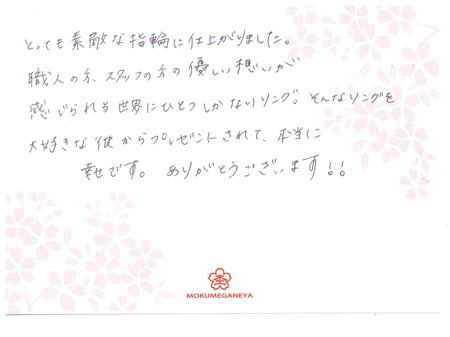 とっても素敵な指輪に仕上がりました。
職人の方、スタッフの方の優しい想いが
感じられる世界にひとつしかないリング。そんなリングを
大好きな彼からプレゼントされて、本当に
幸せです。ありがとうございます！！
MOKUMEGANEYA